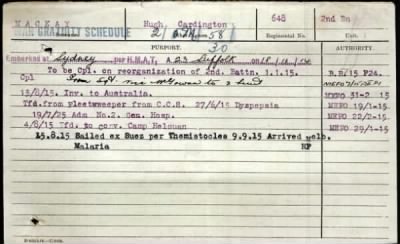 MACKAY Hugh, Cardington 648 2nd Bn
WAR GRATUITY SCHEDULE 2 58) Regimental No. Unit
PURPORT. 30 AUTHORITY.
Embarked at Sydney per H.M.A.T. A 23 Suffolk on
To be Cpl. on reorganization of 2nd. Battn. 1.1.15. B.R/15 P24.
Cpl
15/8/15. Inv. to Australia. MEFO 31-2 15
Tfd.from fleetsweeper from C.C.S. 27/6/15 Dyspepsia MEFO 19/1-15.
19/7/25 Adm No.2. Gen. Hosp. MEFO 22/2-15.
4/8/15 Tfd to conv. Camp Helouan MEFO 29/1-15
15.8.15 Sailed ex Suez per Themistocles 9.9.15 Arrived Melb.
Malaria